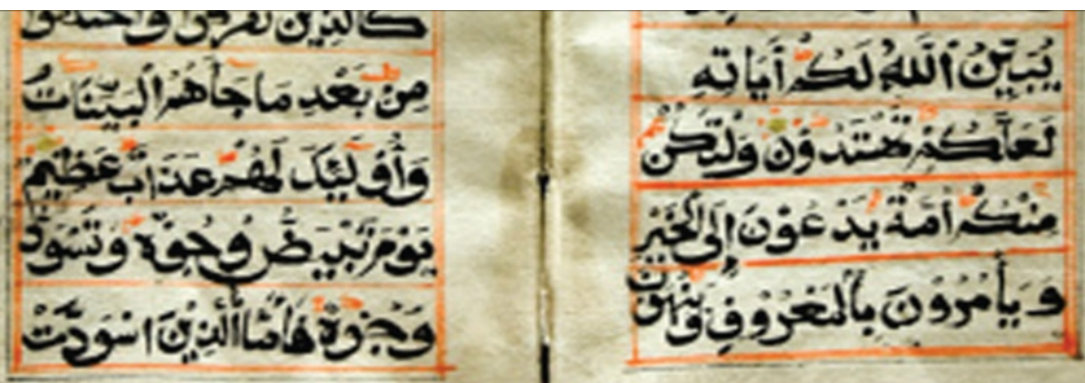 يُبَيِّنُ اللَّهُ لَكُمْ أَيَاتِهِ
لَعَلَّكُمْ تَهْتَدُوْنَ وَلْتَكُنْ
مِنْكُمْ أُمَةٌ يَدْعُوْنَ إِلَى الْخَيْرِ
وَيَأْمُرُوْنَ بِالْمَعْرُوْفِ وَيَنْهَوْنَ
كَالَّذِيْنَ تَفَرَّقُوا وَاخْتَلَفُوا
مِنْ بَعْدِ مَا جَاَهُمُ الْبَيِّنَاتُ
وَأُوْلَئِكَ لَهُمْ عَذَابٌ عَظِيْمٌ
يَوْمَ تَبْيَضُّ وُجُوْهٌ وَتَسْوَدُّ
وُجُوْهٌ فَأَمَّا الَّذِيْنَ اسْوَدَّتْ